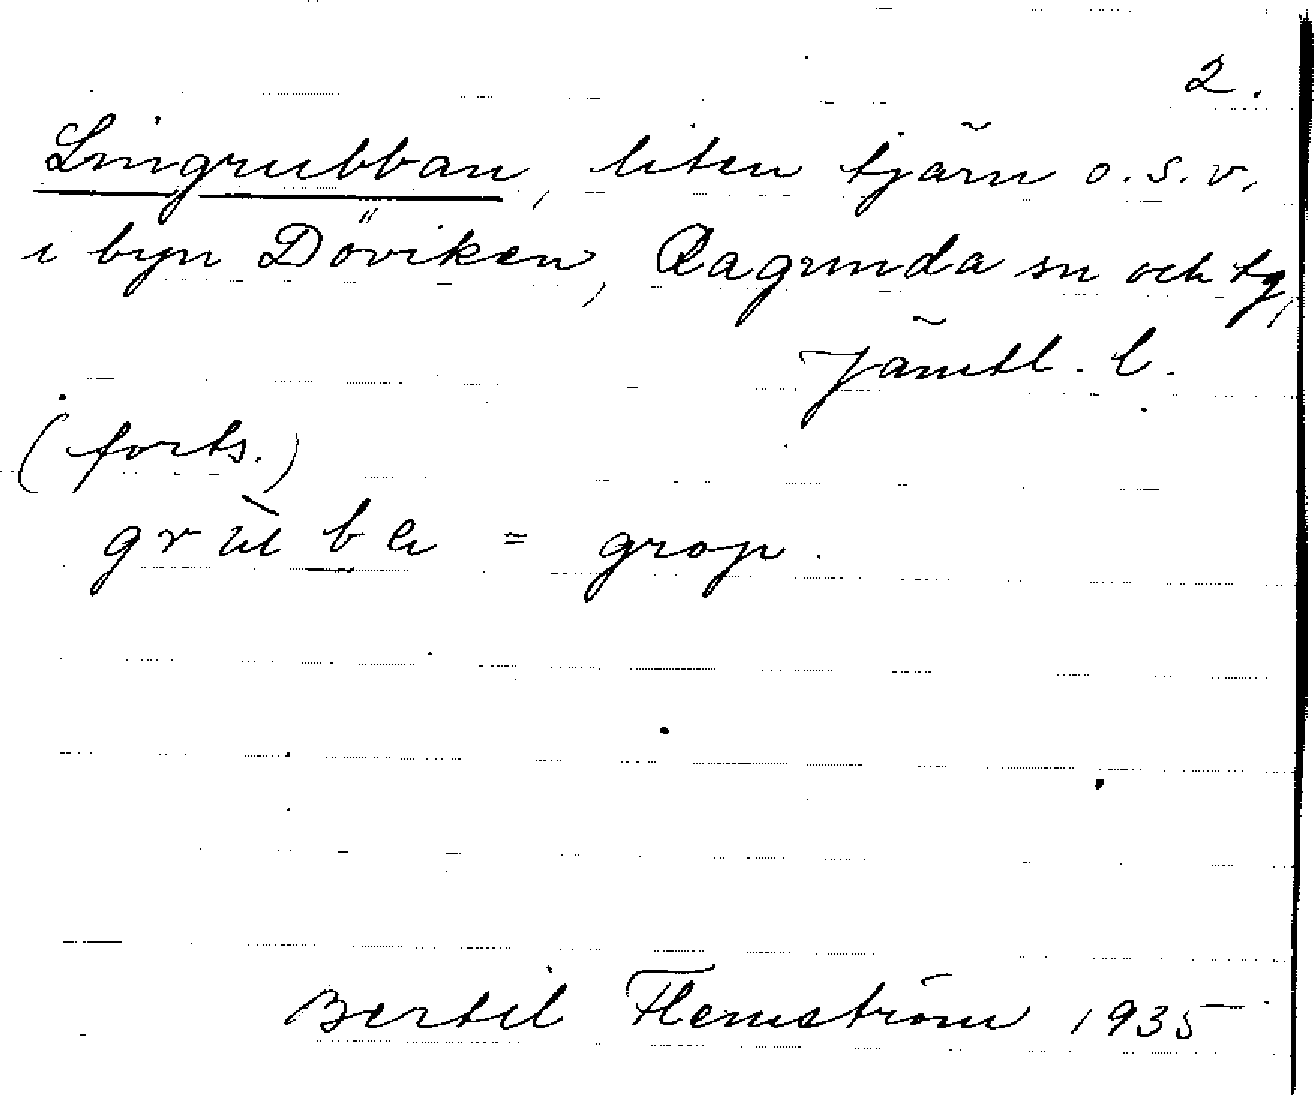 2.
Lingrubban, liten tjärn o.s.v.
i byn Döviken, Ragunda sn och tg,
Jämtl. l.
(forts.)
= grop.
Bertil Flemström 1935